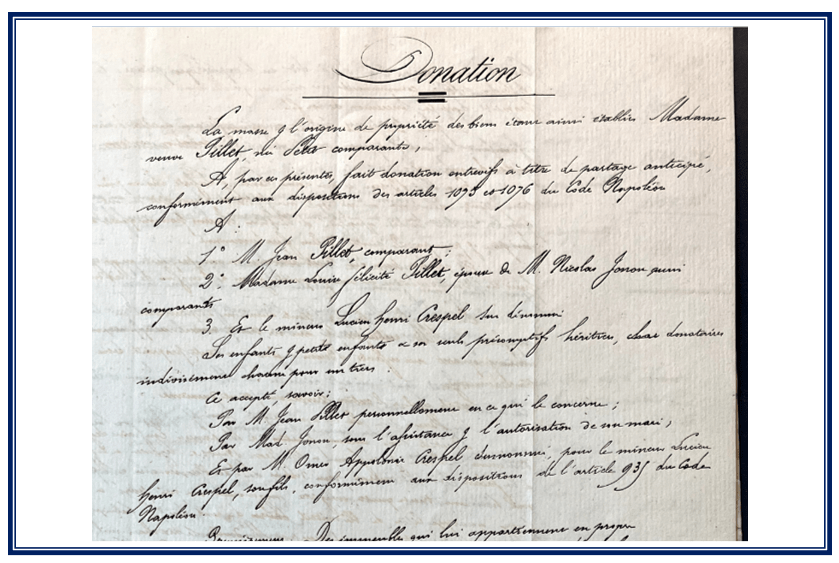 Donation
La masse & l'origine de propriété des biens étant ainsi établies Madame
veuve Pillet, née Petit comparante,
A, par ces présentes, fait donation entrevifs à titre de partage anticipé,
conformément aux dispositions des articles 1075 et 1076 du Code Napoléon
A :
1° M. Jean Pillet, comparant ;
2° Madame Louise Félicité Pillet, épouse de M. Nicolas Jonon, aussi
comparants
3. Et le mineur Lucien Henri Crespel sus dénommé
Ses enfants & petits enfants & ses seuls présomptifs héritiers, donataires
indivisément chacun pour un tiers.
Ce accepté, savoir :
Par M. Jean Pillet personnellement en ce qui le concerne ;
Par Mad. Jonon sous l'assistance & l'autorisation de son mari ;
Et par M. Omer Appolonie Crespel susnommé, pour le mineur Lucien
Henri Crespel, son fils, conformément aux dispositions de l'article 935 du Code
Napoléon.
Des immeubles qui lui appartiennent en propre